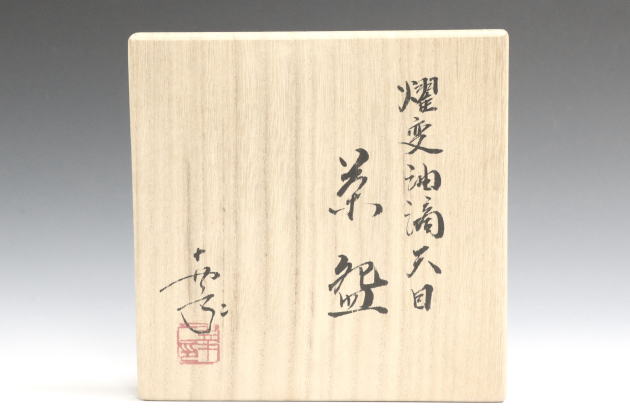 燿変油滴天目
茶盌